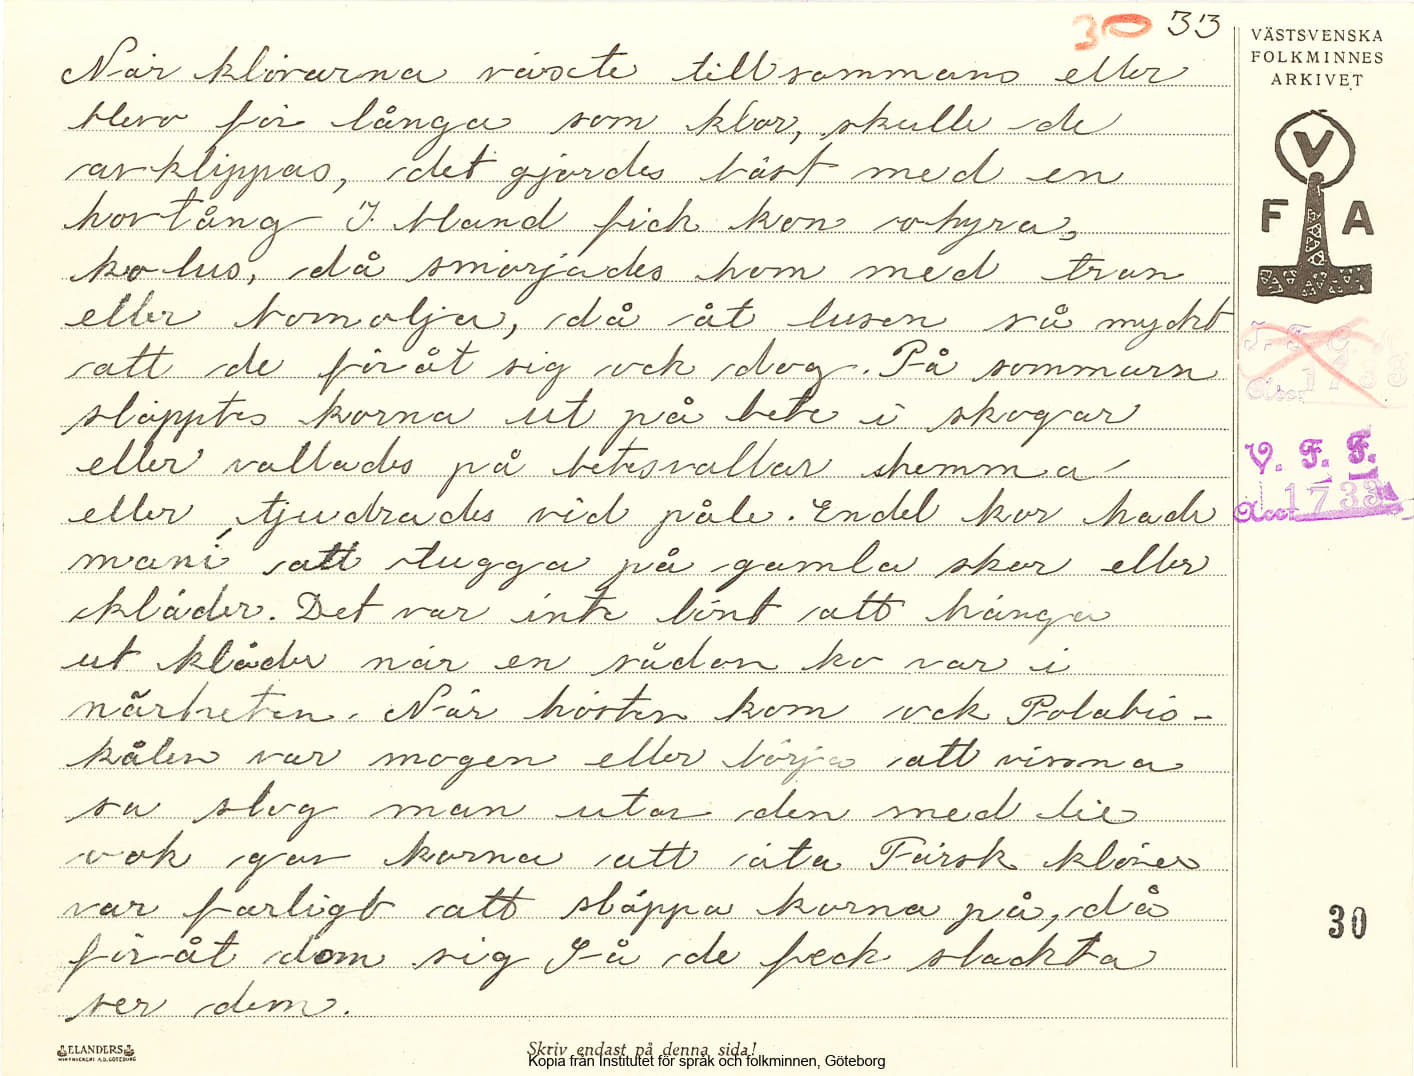 30 33
När klövarna växte tillsammans eller
blevo för långa som klor, skulle de
avklippas, det gjordes bäst med en
hovtång I bland fick kon ohyra,
ko lus, då smörjades hom med tran
eller bomolja, då åt lusen så myckt
att de föråt sig ock dog. På sommarn
släpptes korna ut på bete i skogar
eller vallades på betesvallar hemma
eller tjudrades vid påle. Endel kor hade
mani att tugga på gamla skor eller
kläder. Det var inte lönt att hänga
ut kläder när en sådan ko var i
närheten. När hösten kom ock Potatis-
kålen var mogen eller börja att vissna
sa slog man utav den med lie
ock gav korna att äta Färsk klöver
var farligt att släppa korna på, då
föråt dom sig Så de feck slackta
ver dem.
VÄSTSVENSKA
FOLKMINNES
ARKIVET
V
F A
V. F. F.
Acc. 1733
30
ELANDERS
Skriv endast på denna sida!
Kopia från Institutet för språk och folkminnen, Göteborg